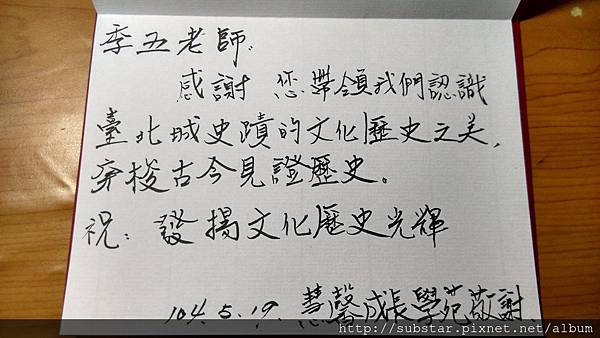 季五老師:
感謝 您帶領我們認識
臺北城史蹟的文化歷史之美,
穿梭古今見證歷史。
祝: 發揚文化歷史光輝
104.5.19. 慧馨成長學苑敬謝.
http://substar.pixnet.net/album